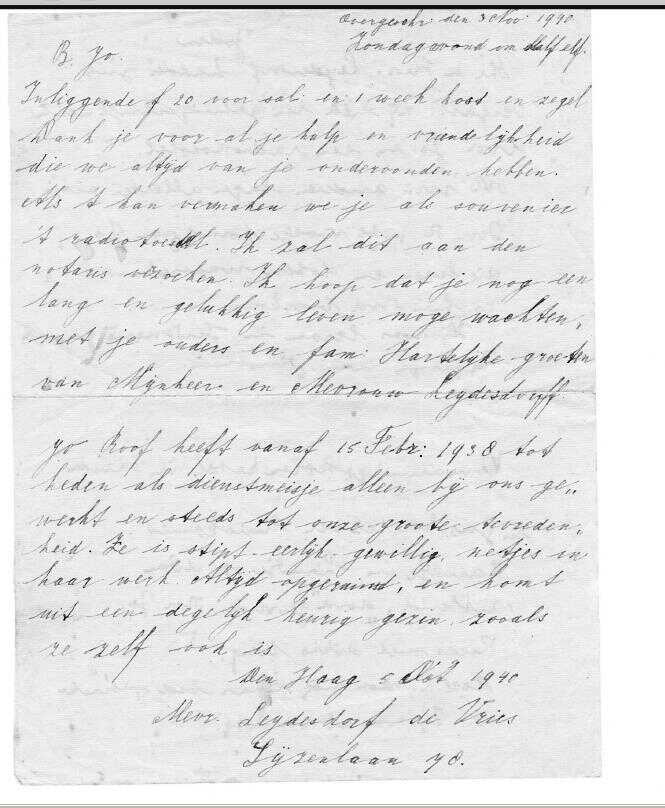 Overgeschr. den 3 Nov. 1940
Zondagavond om Half elf.
B. Jo.
Inliggende f 20 voor sal. en 1 week kost en zegel
Dank je voor al je hulp en vriendelijkheid
die we altyd van je ondervonden hebben.
Als 't kan vermaken we je als souvenier
't radiotoestel. Ik zal dit aan den
notaris verzoeken. Ik hoop dat je nog een
lang en gelukkig leven moge wachten,
met je ouders en fam. Hartelyke groeten
van Mijnheer en Mevrouw Leydesdorff
Jo Roof heeft vanaf 15 Febr: 1938 tot
heden als dienstmeisje alleen by ons ge„
werkt en steeds tot onze groote tevreden„
heid. Ze is stipt eerlijk gewillig, netjes in
haar werk. Altyd opgeruimd, en komt
uit een degelyk keurig gezin, zooals
ze zelf ook is
Den Haag 5 Oct 1940
Mevr. Leydesdorf de Vries
78.